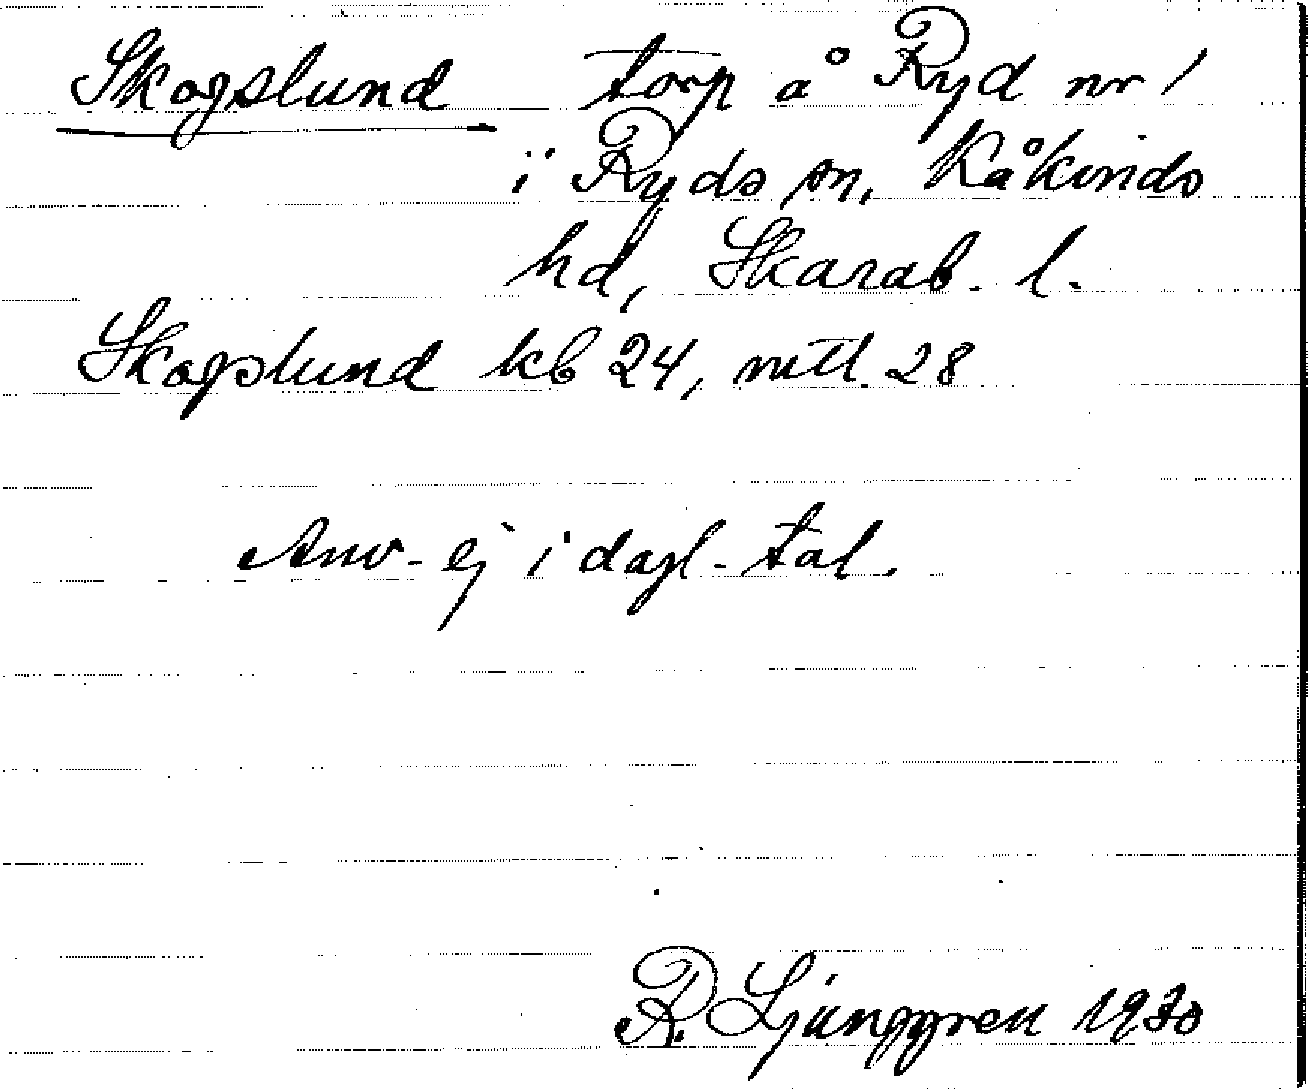 Skogslund torp å Ryd nr 1
i Ryds sn, Kåkinds
hd, Skarab. l.
Skogslund kb 24, mtl. 28
Anv. ej i dagl. tal.
R. Ljunggren 1930